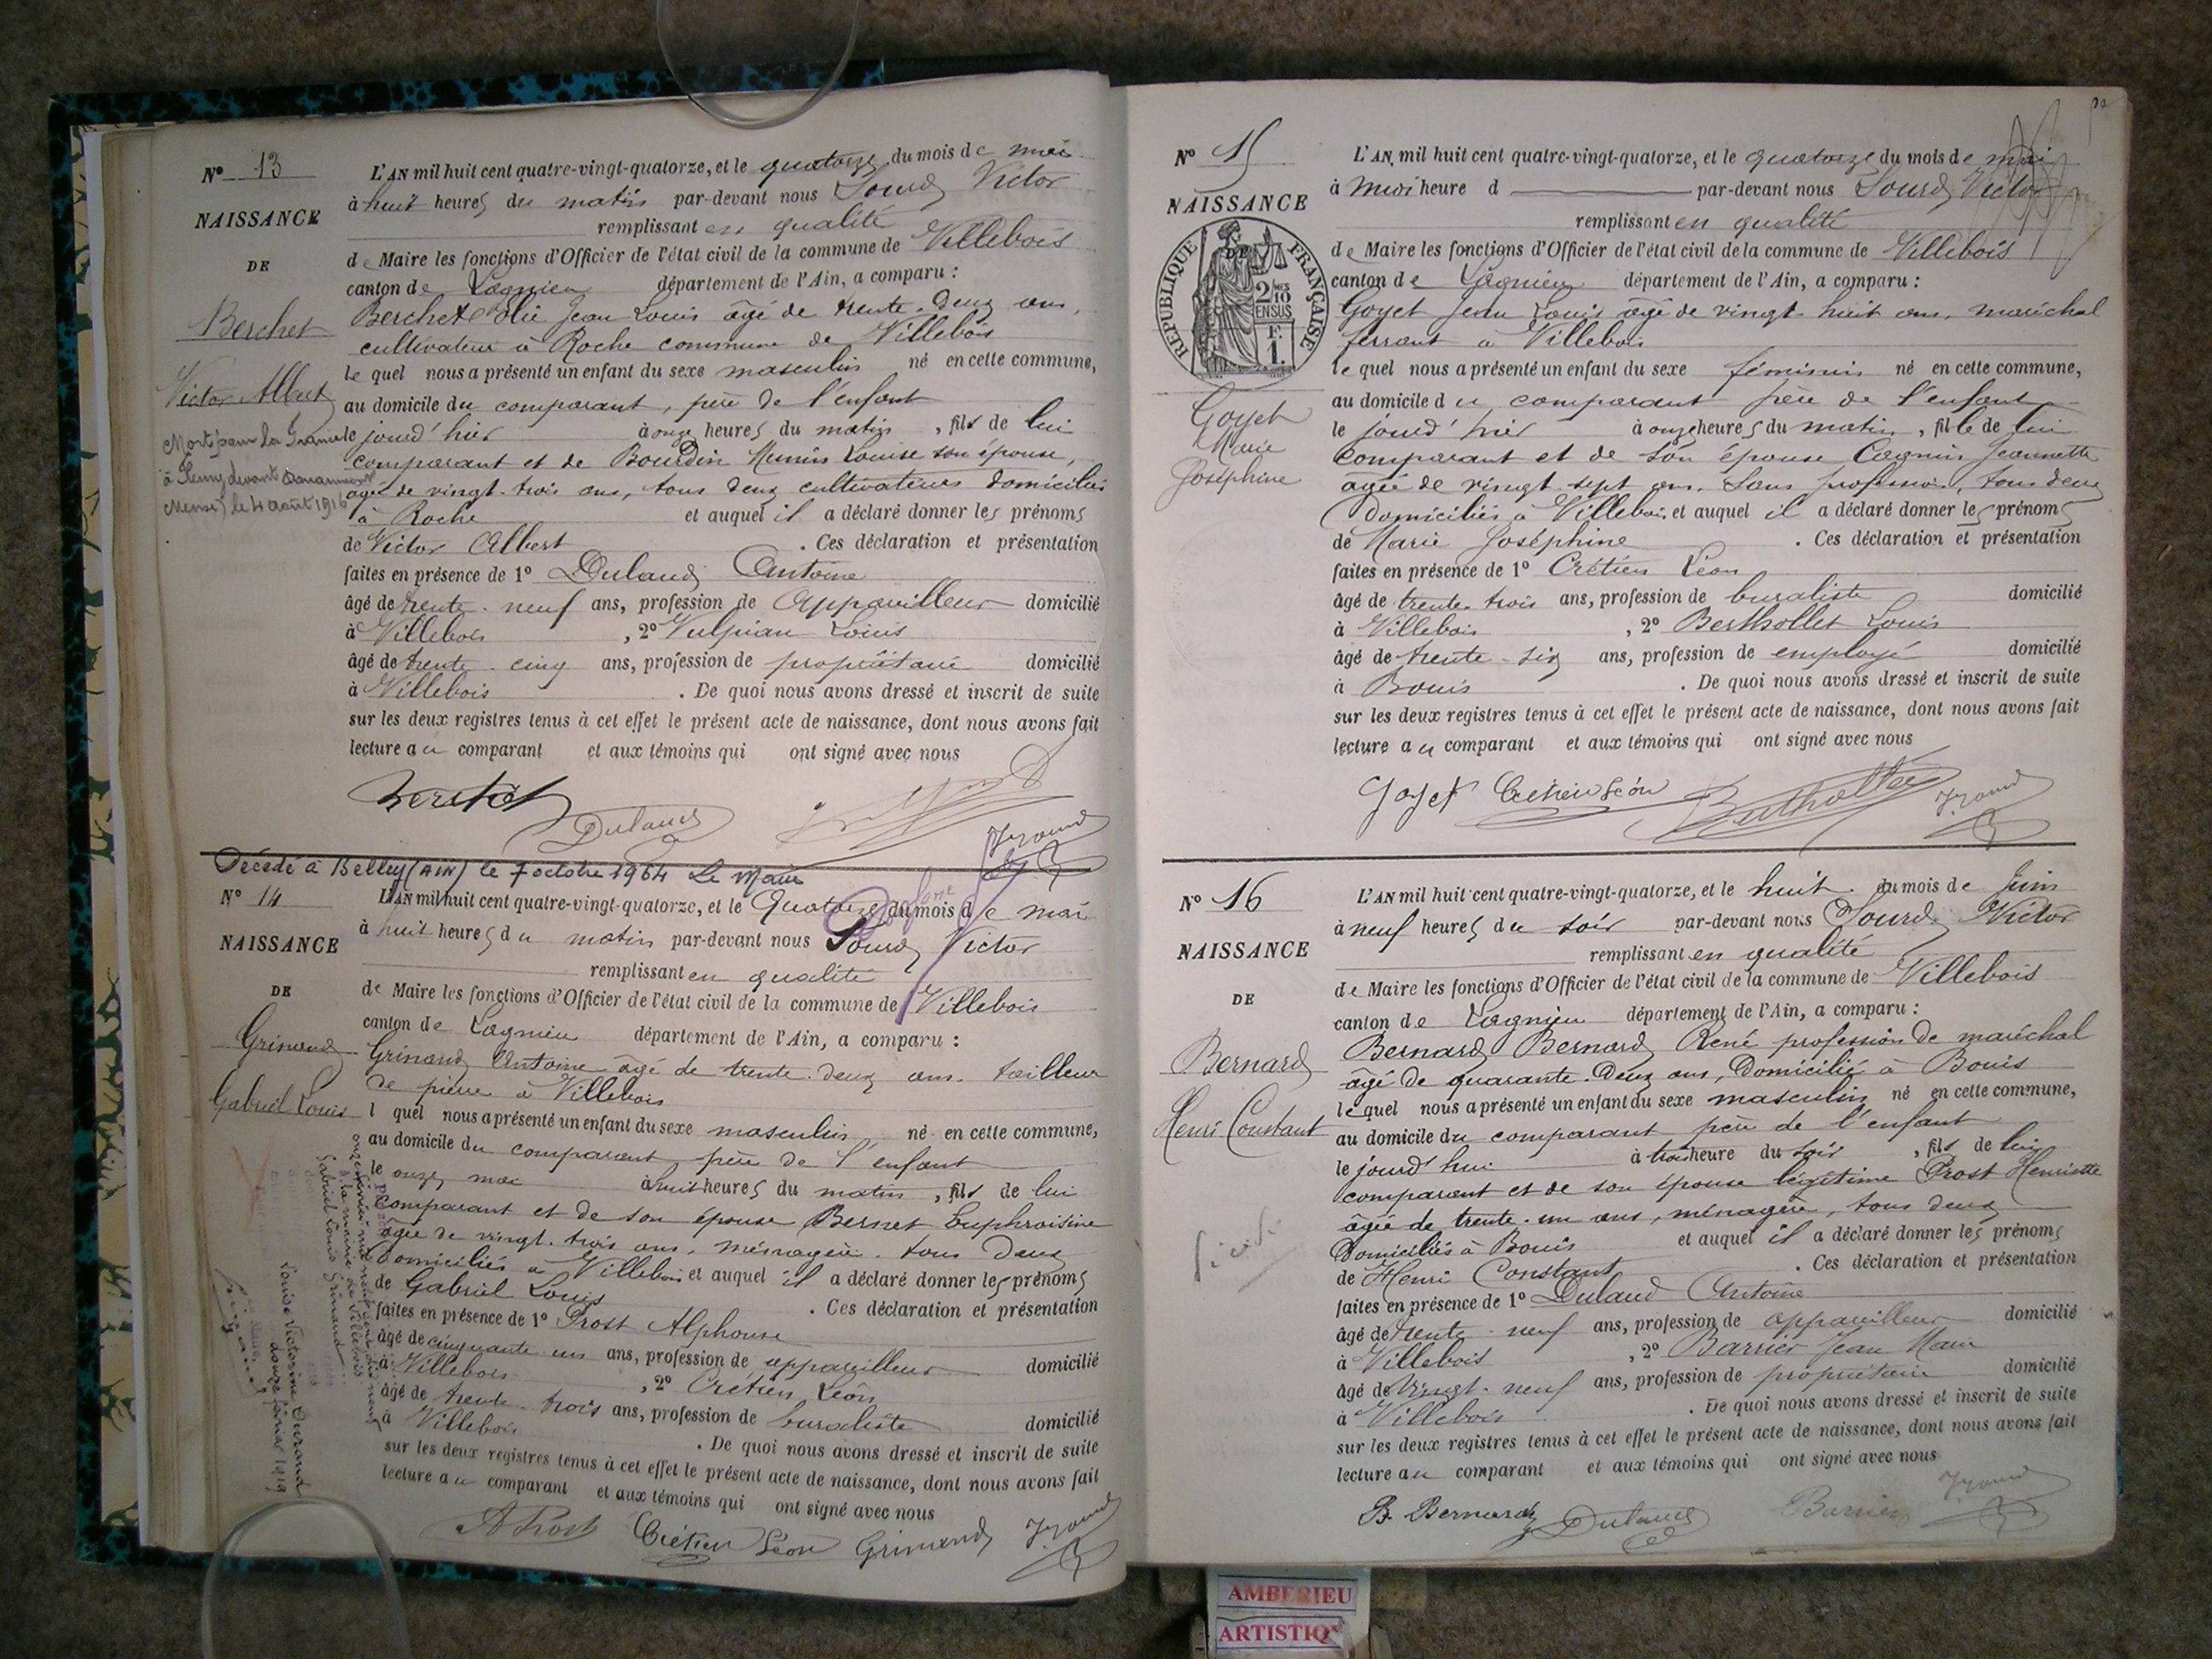 N° 13
NAISSANCE
DE
Berchet
Victor Albert
Mort pour la France
à devant
Meuse) le 4 août 1916
L'AN mil huit cent quatre-vingt-quatorze, et le quatorze du mois de mai
à huit heures du matin par-devant nous Sourd Victor
remplissant en qualité
de Maire les fonctions d'Officier de l'état civil de la commune de Villebois
canton de Lagnieu département de l'Ain, a comparu :
Berchet Jean Louis âgé de trente-deux ans,
cultivateur à Roche commune de Villebois
le quel nous a présenté un enfant du sexe masculin né en cette commune,
au domicile du comparant, père de l'enfant
le jourd'hier à onze heures du matin, fils de lui
comparant et de Bourdin Louise son épouse,
agée de vingt-trois ans, tous deux cultivateurs domiciliés
à Roche et auquel il a déclaré donner les prénoms
de Victor Albert . Ces déclaration et présentation
faites en présence de 1° Dulaud Antoine
âgé de trente-neuf ans, profession de appareilleur domicilié
à Villebois , 2° Vulpian Louis
âgé de trente-cinq ans, profession de propriétaire domicilié
à Villebois . De quoi nous avons dressé et inscrit de suite
sur les deux registres tenus à cet effet le présent acte de naissance, dont nous avons fait
lecture au comparant et aux témoins qui ont signé avec nous
Berchet
Dulaud
Décédé à Belley (AIN) le 7 octobre 1964 Le Maire
N° 14
NAISSANCE
DE
Grinand
Gabriel Louis
L'AN mil huit cent quatre-vingt-quatorze, et le Quatorze du mois de mai
à huit heures du matin par-devant nous Sourd Victor
remplissant en qualité
de Maire les fonctions d'Officier de l'état civil de la commune de Villebois
canton de Lagnieu département de l'Ain, a comparu :
Grinand Antoine âgé de trente-deux ans. tailleur
de pierre à Villebois
l quel nous a présenté un enfant du sexe masculin né en cette commune,
au domicile du comparant père de l'enfant
le onze mai à huit heures du matin, fils de lui
comparant et de son épouse Bernet Euphroisine
âgée de vingt-trois ans, ménagère. tous deux
domiciliés à Villebois et auquel il a déclaré donner les prénoms
de Gabriel Louis . Ces déclaration et présentation
faites en présence de 1° Prost Alphonse
âgé de cinquante-un ans, profession de appareilleur domicilié
à Villebois , 2° Crétien Léon
âgé de trente-trois ans, profession de buraliste domicilié
à Villebois . De quoi nous avons dressé et inscrit de suite
sur les deux registres tenus à cet effet le présent acte de naissance, dont nous avons fait
lecture au comparant et aux témoins qui ont signé avec nous
à la mairie de Villebois
Gabriel Louis Grinand
Louise Victorine Durand
douze février 1919
A Prost Crétien Léon Grinand
N° 15
NAISSANCE
DE
REPUBLIQUE FRANÇAISE
2/10 EN SUS
F. 1.
Goyet
Marie
Joséphine
L'AN mil huit cent quatre-vingt-quatorze, et le quatorze du mois de mai
à midi heure d par-devant nous Sourd Victor
remplissant en qualité
de Maire les fonctions d'Officier de l'état civil de la commune de Villebois
canton de Lagnieu département de l'Ain, a comparu :
Goyet Jean Louis âgé de vingt-huit ans, maréchal
ferrant à Villebois
le quel nous a présenté un enfant du sexe féminin né en cette commune,
au domicile du comparant père de l'enfant
le jourd'hier à onze heures du matin, fille de lui
comparant et de son épouse Cagnin Jeannette
agée de vingt sept ans. Sans profession, tous deux
domiciliés à Villebois et auquel il a déclaré donner les prénoms
de Marie Joséphine . Ces déclaration et présentation
faites en présence de 1° Crétien Léon
âgé de trente-trois ans, profession de buraliste domicilié
à Villebois , 2° Berthollet Louis
âgé de trente-six ans, profession de employé domicilié
à Bouis . De quoi nous avons dressé et inscrit de suite
sur les deux registres tenus à cet effet le présent acte de naissance, dont nous avons fait
lecture au comparant et aux témoins qui ont signé avec nous
Goyet Crétien Léon Berthollet
N° 16
NAISSANCE
DE
Bernard
Henri Constant
L'AN mil huit cent quatre-vingt-quatorze, et le huit du mois de Juin
à neuf heures du soir par-devant nous Sourd Victor
remplissant en qualité
de Maire les fonctions d'Officier de l'état civil de la commune de Villebois
canton de Lagnieu département de l'Ain, a comparu :
Bernard Bernard René profession de maréchal
âgé de quarante-deux ans, Domicilié à Bouis
le quel nous a présenté un enfant du sexe masculin né en cette commune,
au domicile du comparant père de l'enfant
le jourd'hui à trois heure du soir , fils de lui
comparant et de son épouse légitime Prost Henriette
âgée de trente-un ans, ménagère, tous deux
Domiciliés à Bouis et auquel il a déclaré donner les prénoms
de Henri Constant . Ces déclaration et présentation
faites en présence de 1° Dulaud Antoine
âgé de trente-neuf ans, profession de appareilleur domicilié
à Villebois , 2° Barrier Jean Marie
âgé de vingt-neuf ans, profession de propriétaire domicilié
à Villebois . De quoi nous avons dressé et inscrit de suite
sur les deux registres tenus à cet effet le présent acte de naissance, dont nous avons fait
lecture au comparant et aux témoins qui ont signé avec nous
B. Bernard Dulaud Barrier
AMBERIEU
ARTISTIQ